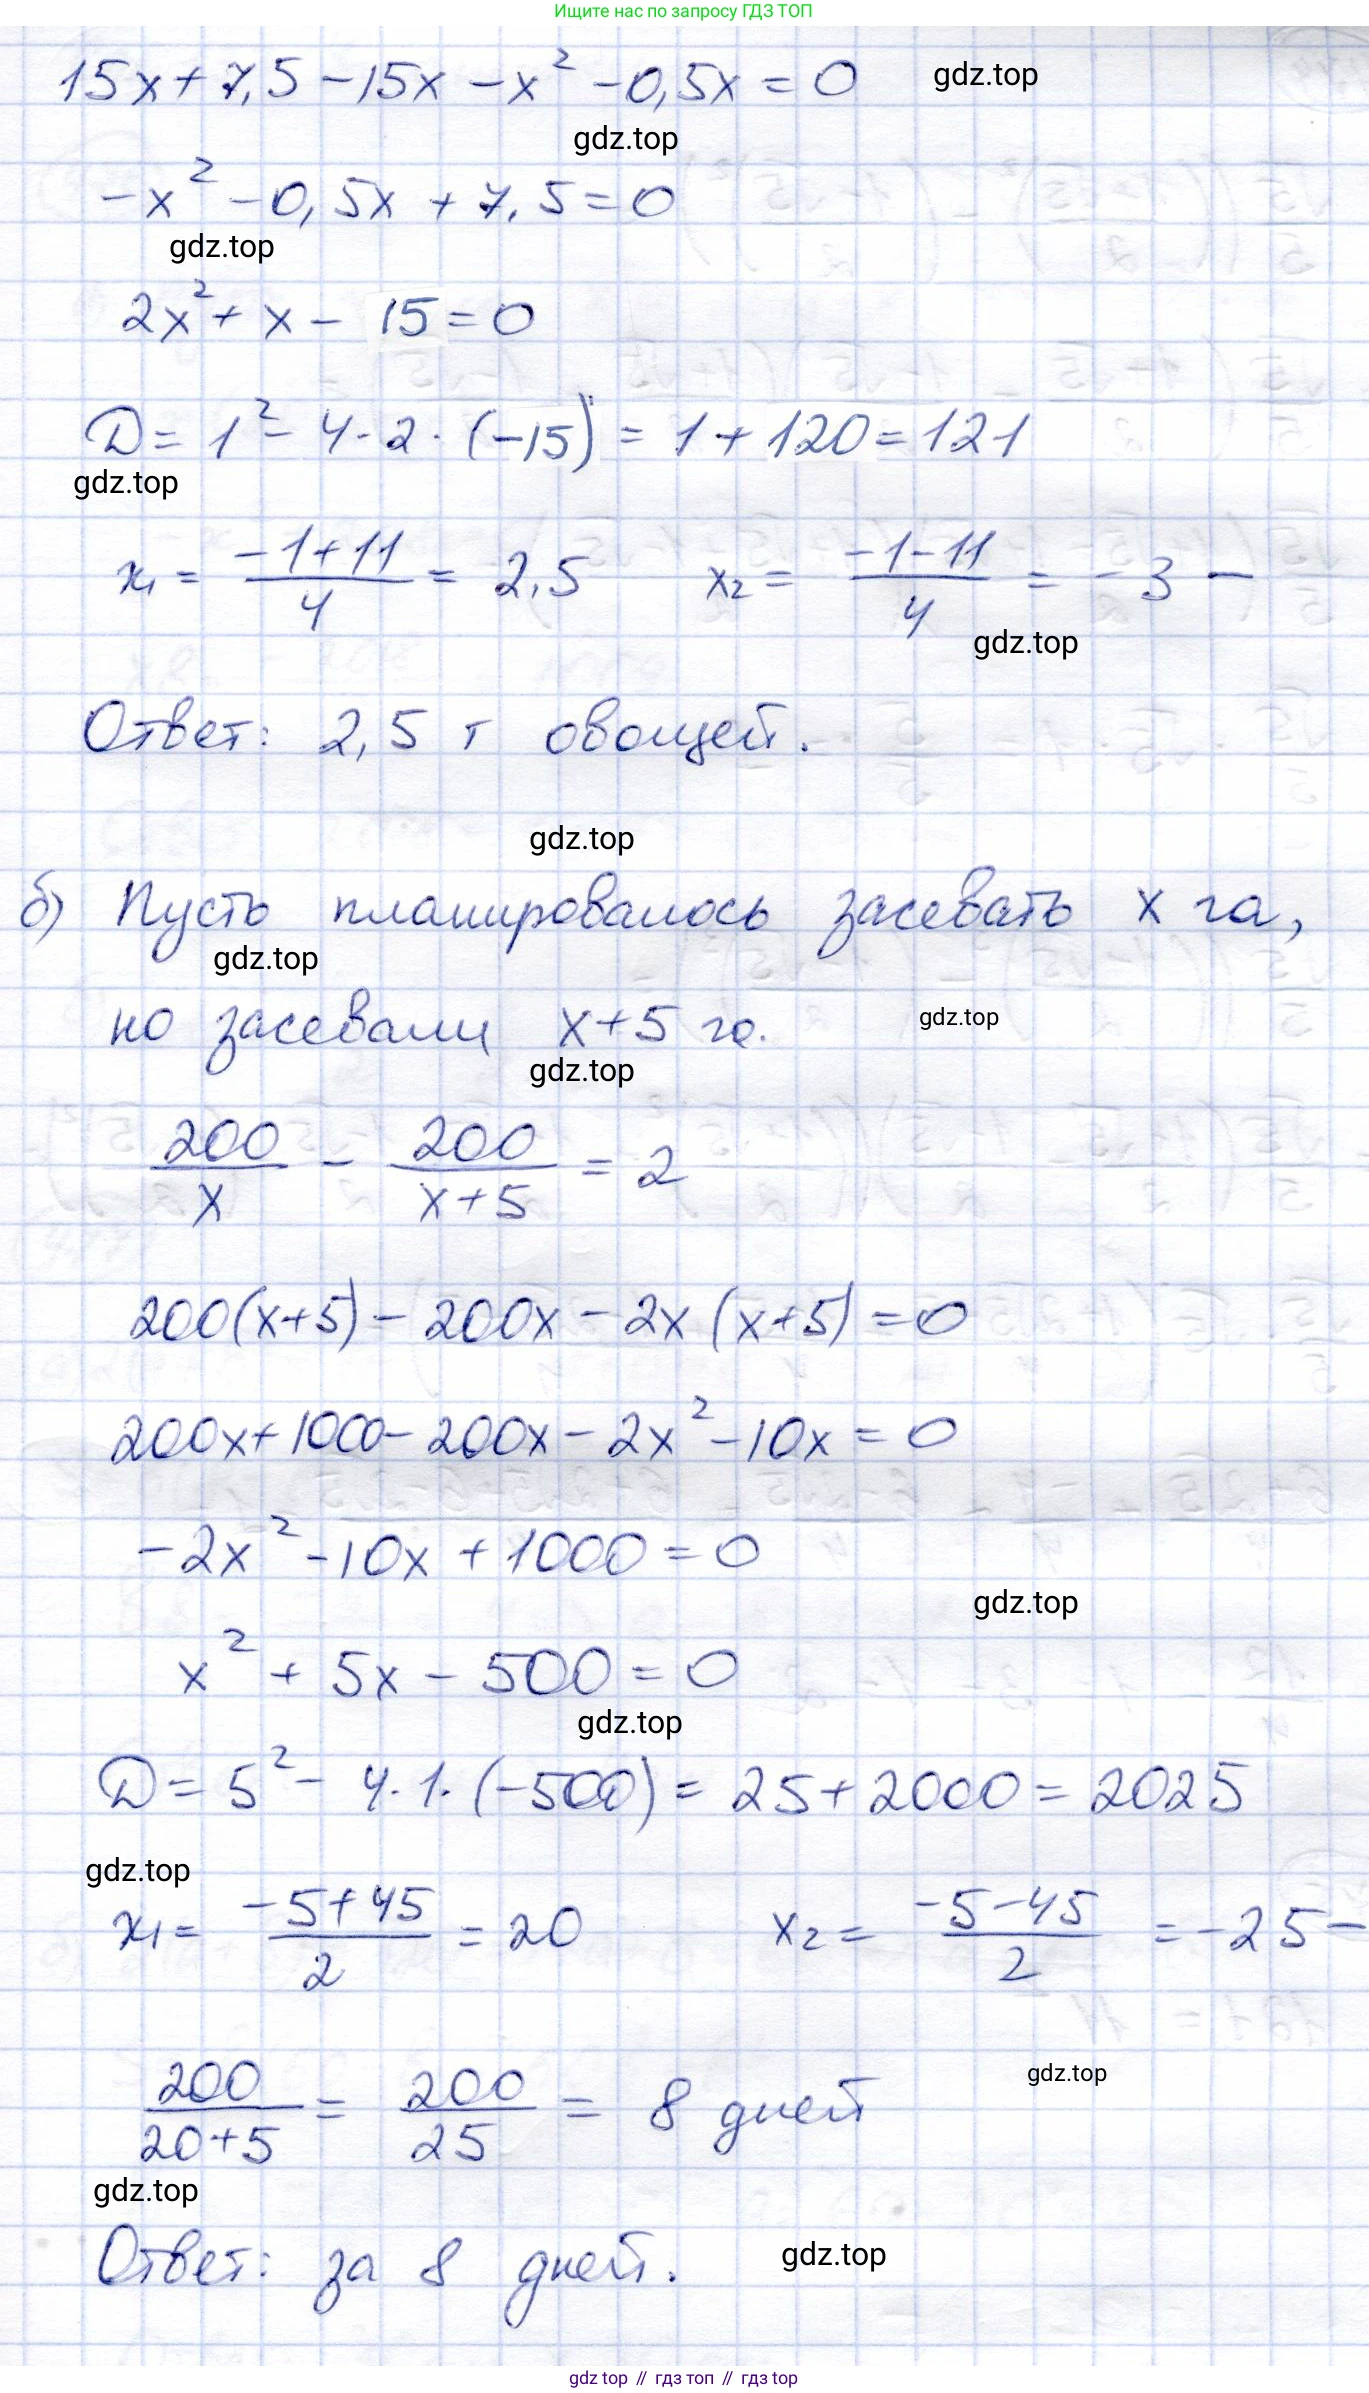 Ищите нас по запросу ГДЗ ТОП
15x + 7,5 - 15x - x² - 0,5x = 0
gdz.top
gdz.top
-x² - 0,5x + 7,5 = 0
gdz.top
2x² + x - 15 = 0
D = 1² - 4 · 2 · (-15) = 1 + 120 = 121
gdz.top
x₁ = (-1+11)/4 = 2,5 x₂ = (-1-11)/4 = -3 -
gdz.top
Ответ: 2,5 т овощей.
gdz.top
б) Пусть планировалось засевать x га,
gdz.top
но засевали x+5 га.
gdz.top
gdz.top
200/x - 200/(x+5) = 2
200(x+5) - 200x - 2x(x+5) = 0
200x + 1000 - 200x - 2x² - 10x = 0
-2x² - 10x + 1000 = 0
gdz.top
x² + 5x - 500 = 0
gdz.top
D = 5² - 4 · 1 · (-500) = 25 + 2000 = 2025
gdz.top
x₁ = (-5+45)/2 = 20 x₂ = (-5-45)/2 = -25 -
200/(20+5) = 200/25 = 8 дней
gdz.top
gdz.top
Ответ: за 8 дней.
gdz.top
gdz top // гдз топ // gdz top